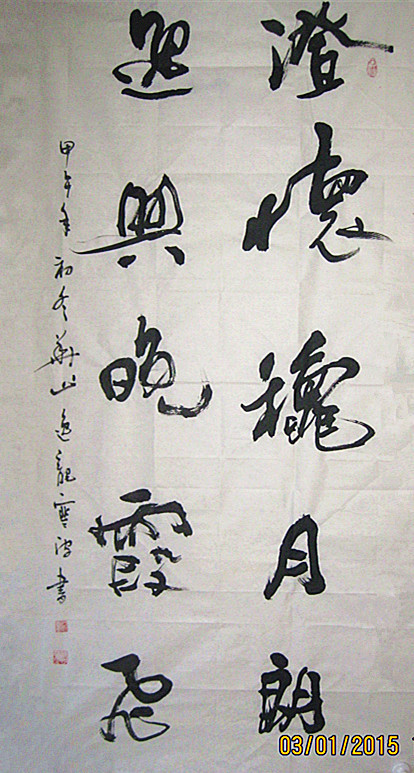 澄懷穐月朗
逸興晚霞飛
甲午年初冬華山逸龍書
03/01/2015